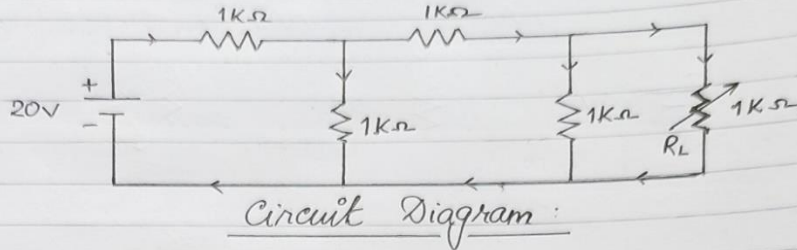 1KΩ 1KΩ
+
20V
-
1KΩ
1KΩ
1KΩ
RL
Circuit Diagram :